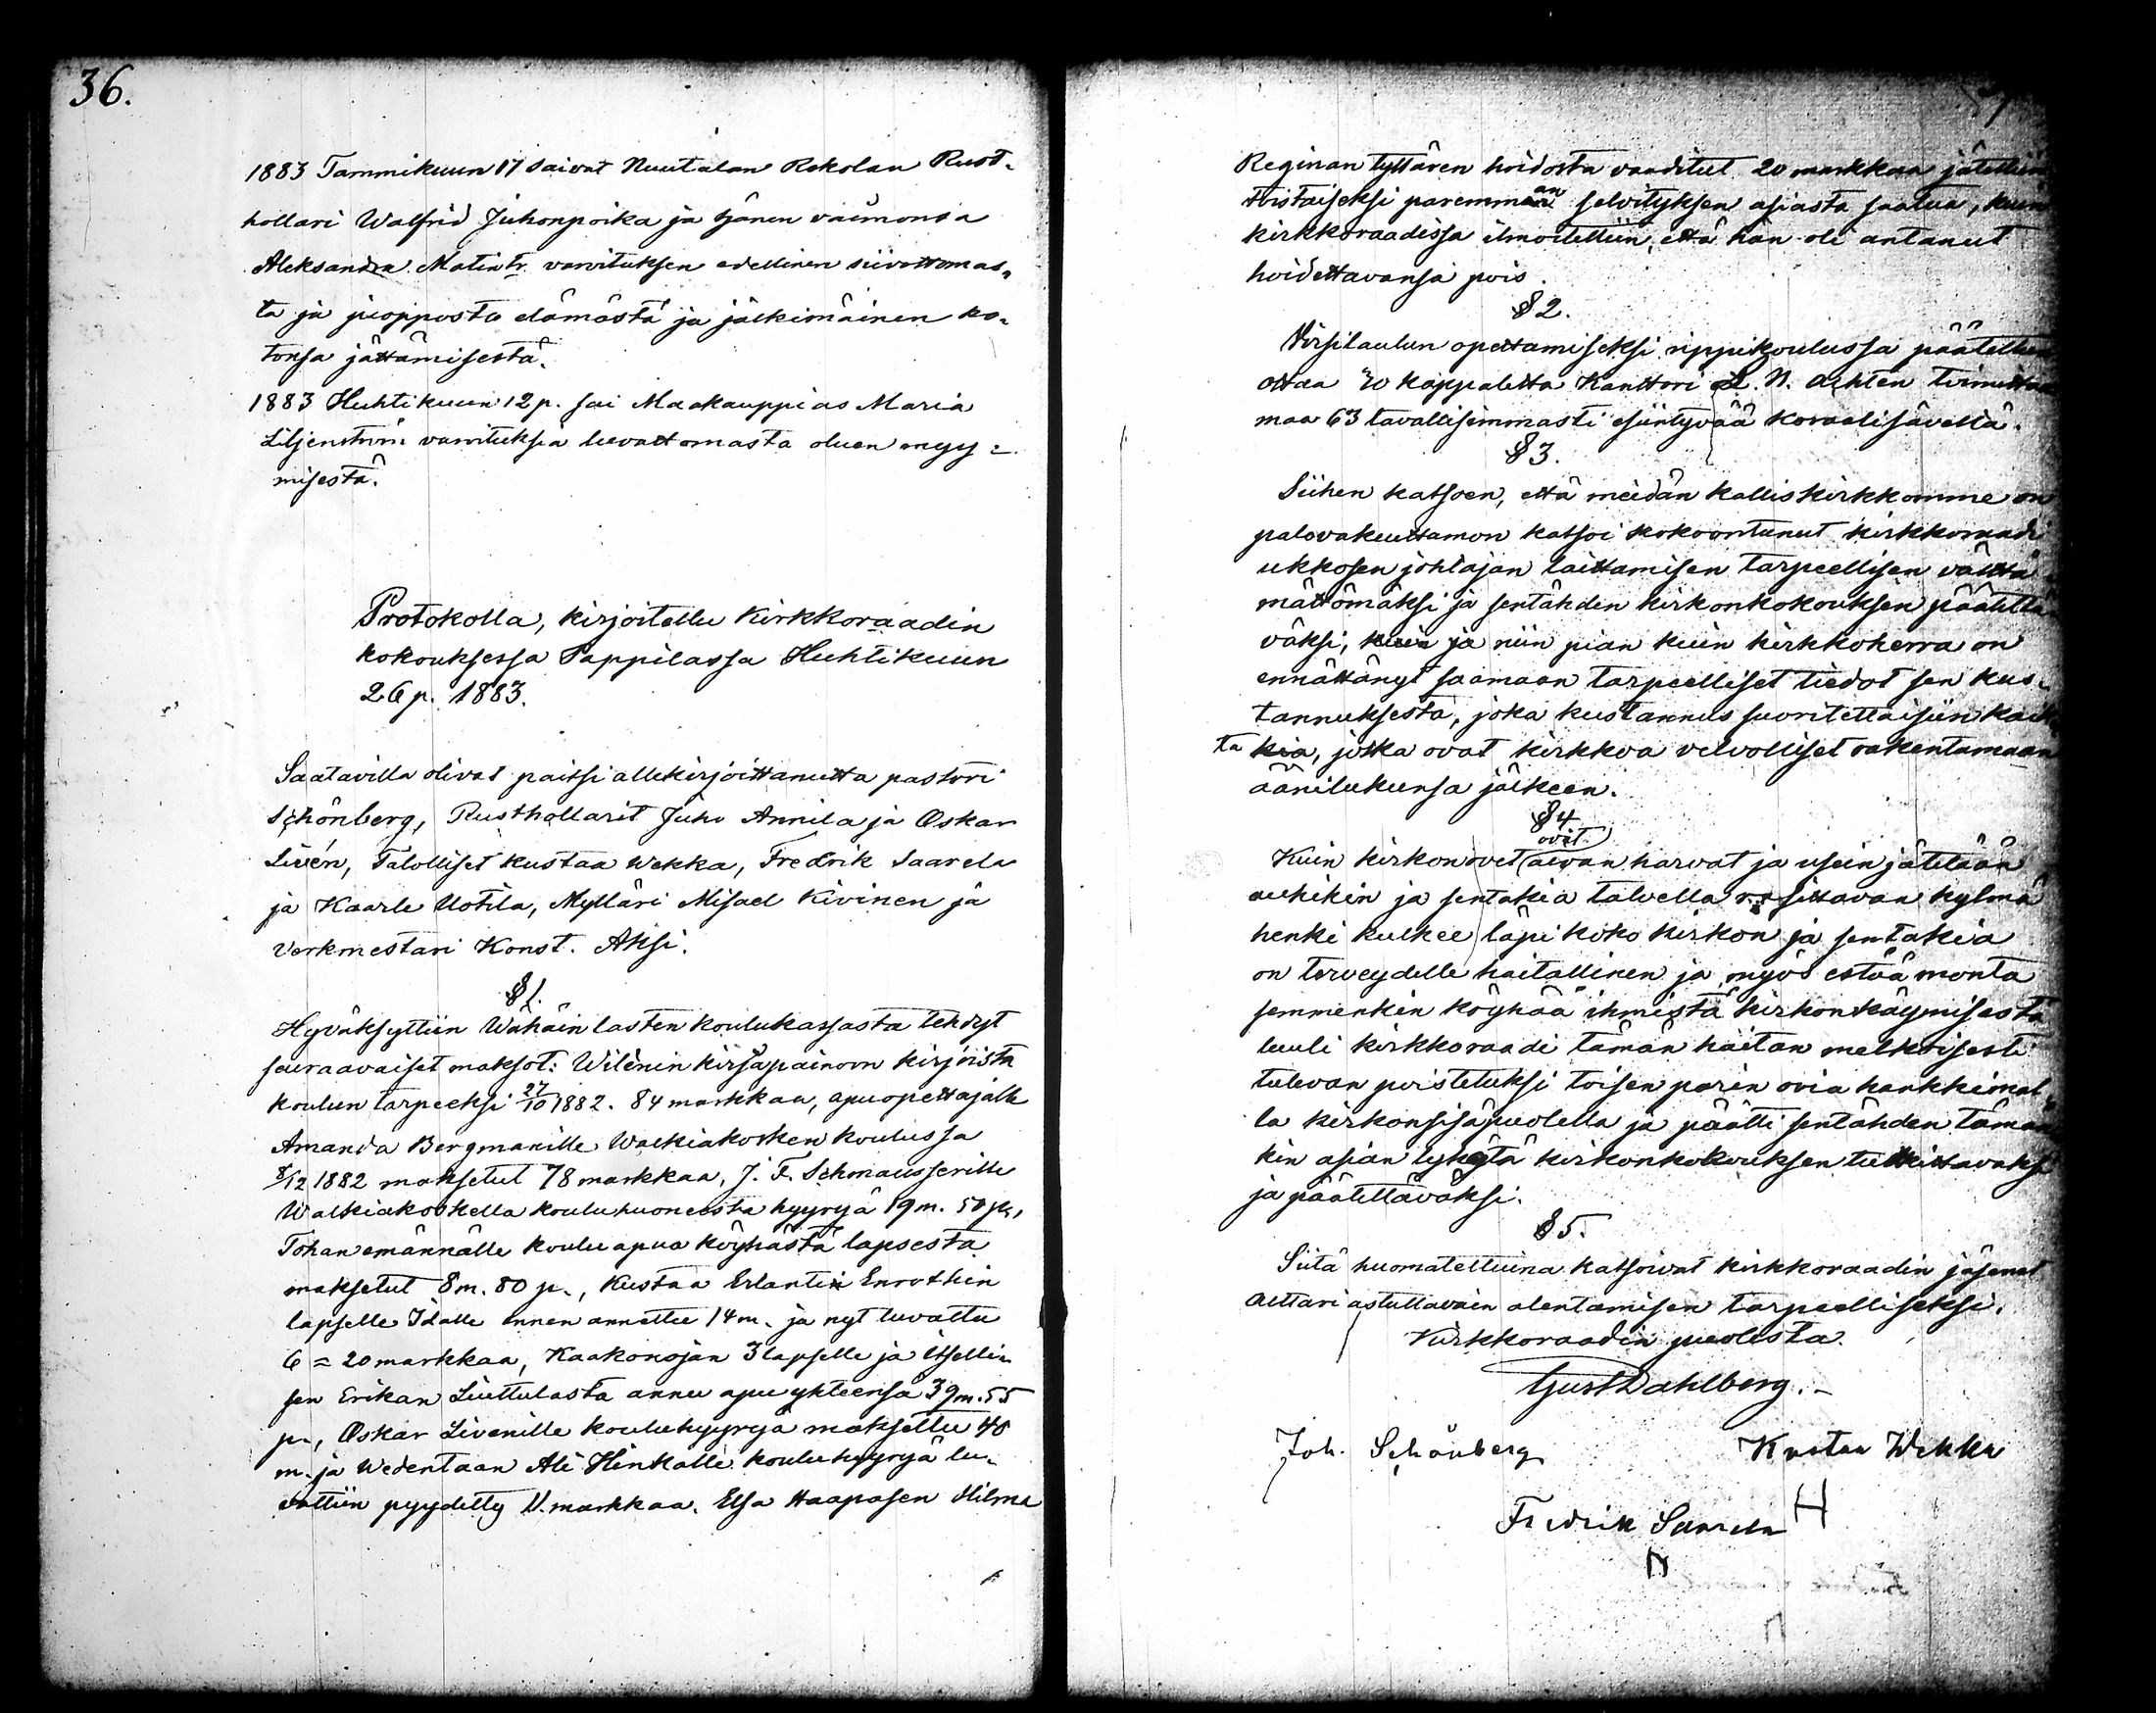 36.
1883 Tammikuun 17 saivat Nuutalan Rokolan Rust-
hollari Walfrid Juhonpoika ja hänen vaimonsa
Aleksandra Matintr. varoituksen edellinen siivottomas-
ta ja juopposta elämästä ja jälkimäinen ko-
tonsa jättämisestä.
1883 Huhtikuun 12 p. sai Maakauppias Maria
Liljenström varoituksia luvattomasta oluen myy=
misestä.
Protokolla, kirjoitettu Kirkkoraadin
kokouksessa Pappilassa Huhtikuun
26 p. 1883.
Saatavilla olivat paitsi allekirjoittanutta pastori
Schönberg, Rusthollarit Juho Annila ja Oskar
Livén, Talolliset Kustaa Wekka, Fredrik Saarela
ja Kaarle Uotila, Mylläri Misael Kivinen ja
Verkmestari Konst. Aksi.
§ 1.
Hyväksyttiin Wähäin lasten koulukassasta tehdyt
seuraavaiset maksot: Wilénin kirjapainoon kirjoista
koulun tarpeeksi 27/10 1882. 84 markkaa, apuopettajalle
Amanda Bergmanille Walkiakosken koulussa
8/12 1882 maksetut 78 markkaa, J. F. Schmausserille
Walkiakoskella kouluhuoneesta hyyryä 19 m. 50 p.,
Tohan emännälle kouluapua köyhästä lapsesta
maksetut 8 m. 80 p., Kustaa Erlantin Enrothin
lapselle Idalle ennen annettu 14 m. ja nyt luvattu
6 = 20 markkaa, Kaakonojan 3 lapselle ja itsellis-
sen Erikan Liuttulasta annu apu yhteensä 39 m. 55
p., Oskar Livenille kouluhyyryä maksettu 40
m. ja Wedentaan Ali Hinkalle kouluhyyryä lu-
vattiin pyydetty 11. markkaa. Elsa Haapasen Hilma
Reginan tyttären hoidosta vaaditut 20 markkaa jätettiin
toistaiseksi paremman an selvityksen asiasta saatua, kun
kirkkoraadissa ilmoitettiin, että hän oli antanut
hoidettavansa pois.
§ 2.
Virsilaulun opettamiseksi rippikoulussa päätettiin
ottaa 20 kappaletta Kanttori L. N. Achtén toimitta
maa 63 tavallisimmasti esiintyvää koraalisäveltä.
§ 3.
Siihen katsoen, että meidän kallis kirkkomme on
palovakuuttamon katsoi kokoontunut kirkkoraadi
ukkosen johtajan laittamisen tarpeellisen vältta
mättömäksi ja sentähden kirkonkokouksen päätettä
väksi, kuin ja niin pian kuin kirkkoherra on
ennättänyt saamaan tarpeelliset tiedot sen kus-
tannuksesta, joka kustannus suoritettaisiin kaik
ta kia, jotka ovat kirkkoa velvolliset rakentamaan
äänilukunsa jälkeen.
§ 4
ovat.
Kuin kirkon ovet aivan harvat ja usein jätetään
aukikin ja sentakia talvella sittavan kylmä
henki kulkee läpi koko kirkon ja sentakia
on terveydelle haitallinen ja myös estää monta
semmenkin köyhää ihmistä kirkonkäymisestä
luuli kirkkoraadi tämän haitan melkoisesti
tulevan poistetuksi toisen parin ovia hankkimal
la kirkon sisäpuolella ja päätti sentähden tämän
kin asian lykätä kirkonkokouksen tutkittavaksi
ja päätettäväksi.
§ 5.
Siitä huomatettuina katsoivat kirkkoraadin jäsenet
alttari astuttavain alentamisen tarpeelliseksi.
Kirkkoraadin puolesta.
Gust Dahlberg.
Joh. Schönberg Kustaa Wekka
Fredrik Saarela H